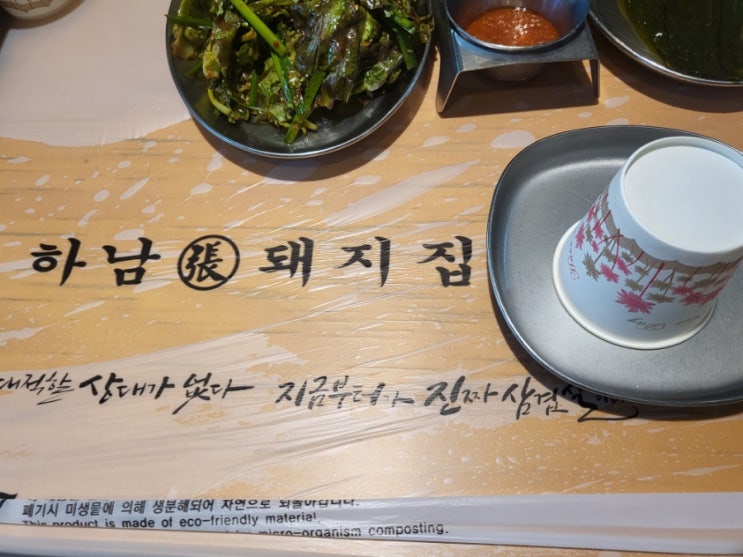 하남 張 돼지집
대적할 상대가 없다 지금부터가 진짜 삼겹살
폐기시 미생물에 의해 생분해되어 자연으로 되돌아갑니다.
This product is made of eco-friendly material.
micro-organism composting.